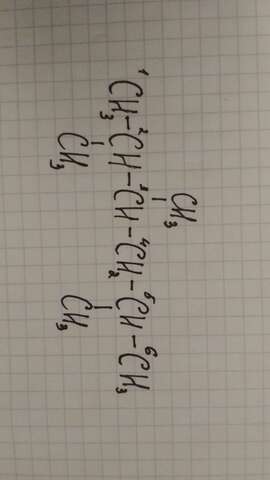 CH₃
|
¹CH₃-²CH-³CH-⁴CH₂-⁵CH-⁶CH₃
| |
CH₃ CH₃